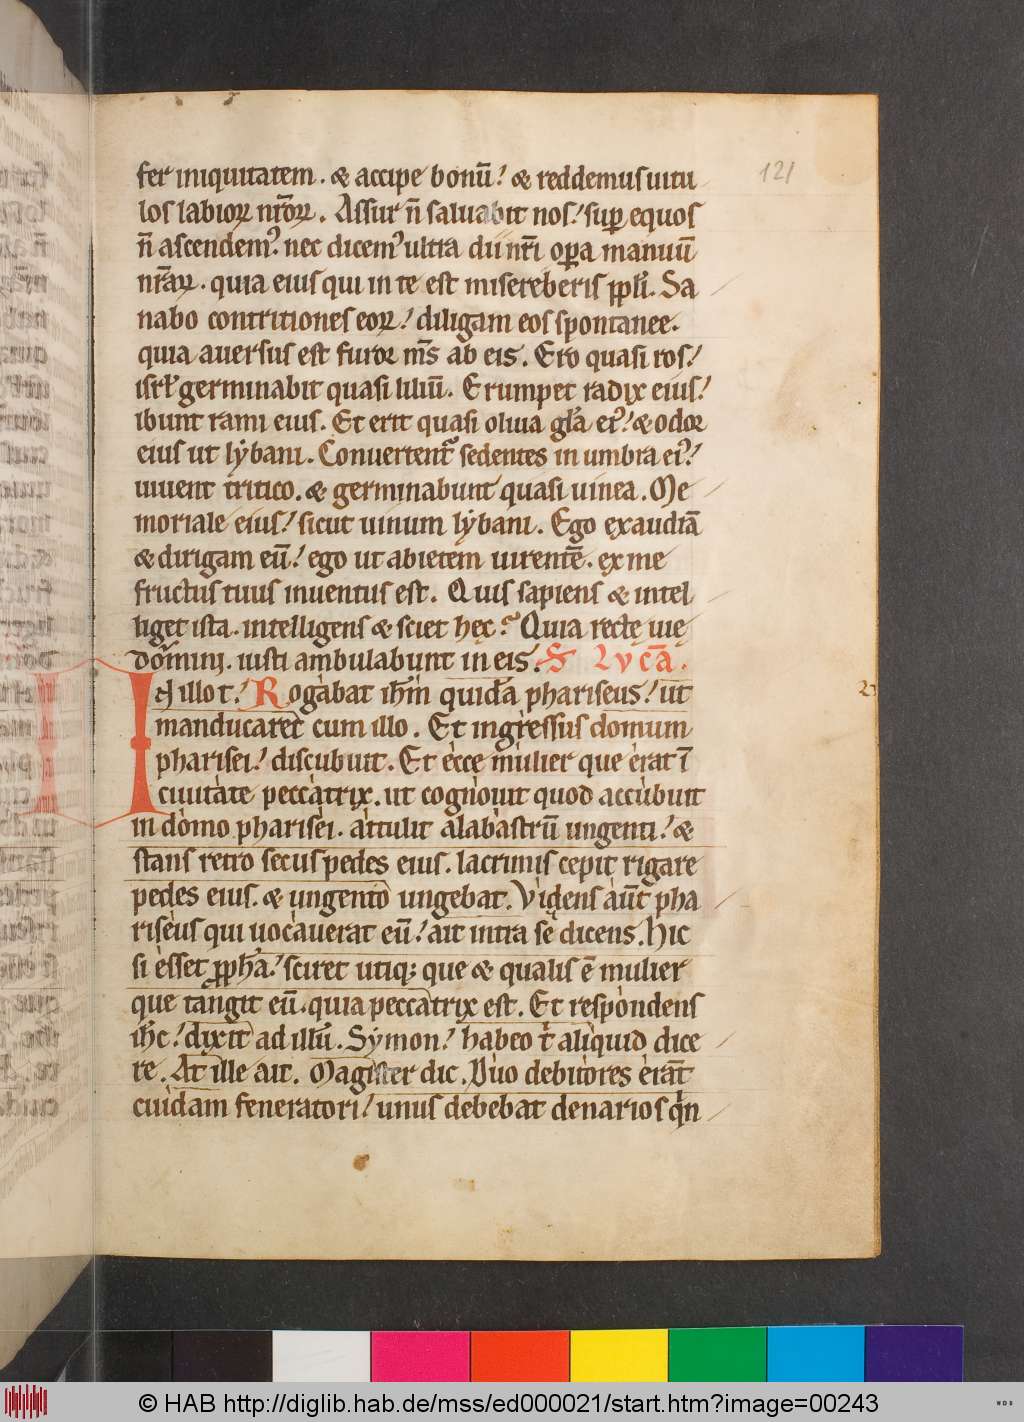 121
fer iniquitatem. & accipe bonū! & reddemus uitu
los labioꝝ nr̄oꝝ. Assur n̄ saluabit nos! suꝑ equos
n̄ ascendemꝰ. nec dicemꝰ ultra dii nr̄i oꝑa manuū
nr̄aꝝ. quia eius qui in te est misereberis ppl̄i. Sa
nabo contritiones eoꝝ! diligam eos spontanee.
quia auersus est furor m̄s ab eis. Ero quasi ros!
isrl̄ germinabit quasi liliū. Erumpet radix eius!
ibunt rami eius. Et erit quasi oliua gl̄a eiꝰ! & odor
eius ut lẏbani. Conuertent᷑ sedentes in umbra eiꝰ!
uiuent tritico. & germinabunt quasi uinea. Me
moriale eius! sicut uinum lẏbani. Ego exaudiā
& dirigam eū! ego ut abietem uirentē. ex me
fructus tuus inuentus est. Quis sapiens & intel
liget ista. intelligens & sciet hęc? Quia rectę uię
domini. iusti ambulabunt in eis. S Lucā.
IN illo t̄! Rogabat ih̄m quidā phariseus! ut
manducaret cum illo. Et ingressus domum
pharisei! discubuit. Et ecce mulier que erat ī
ciuitate peccatrix. ut cognouit quod accubuit
in domo pharisei. attulit alabastrū ungenti! &
stans retro secus pedes eius. lacrimis cepit rigare
pedes eius. & ungento ungebat. Videns aūt pha
riseus qui uocauerat eū! ait intra se dicens. Hic
si esset ꝓph̄a! sciret utiqꝫ que & qualis ē mulier
que tangit eū. quia peccatrix est. Et respondens
ih̄c! dixit ad illū. Sẏmon! habeo t̄ aliquid dice
re. At ille ait. Magister dic. Duo debitores erāt
cuidam feneratori! unus debebat denarios qn
© HAB http://diglib.hab.de/mss/ed000021/start.htm?image=00243